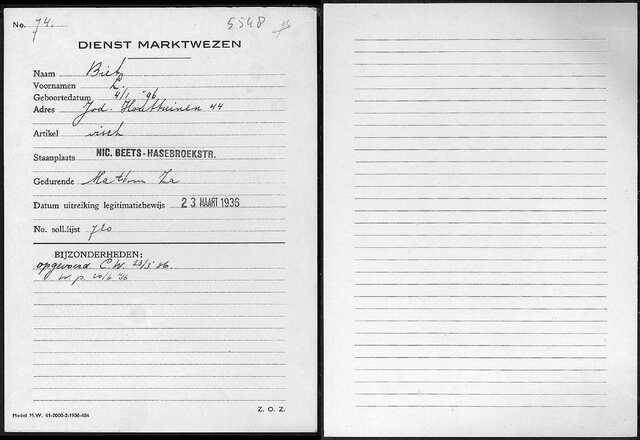 No. 74. 5548
DIENST MARKTWEZEN
Naam Bietz
Voornamen L.
Geboortedatum 4/1 '96
Adres Jod. Houttuinen 44
Artikel visch
Staanplaats NIC. BEETS-HASEBROEKSTR.
Gedurende Ma t/m Za
Datum uitreiking legitimatiebewijs 23 MAART 1936
No. soll.lijst 710
BIJZONDERHEDEN:
opgevoerd C.W. 23/3 '36.
w.p. 20/6 '36
Model M.W. 41-2000-2-1936-484
Z. O. Z.